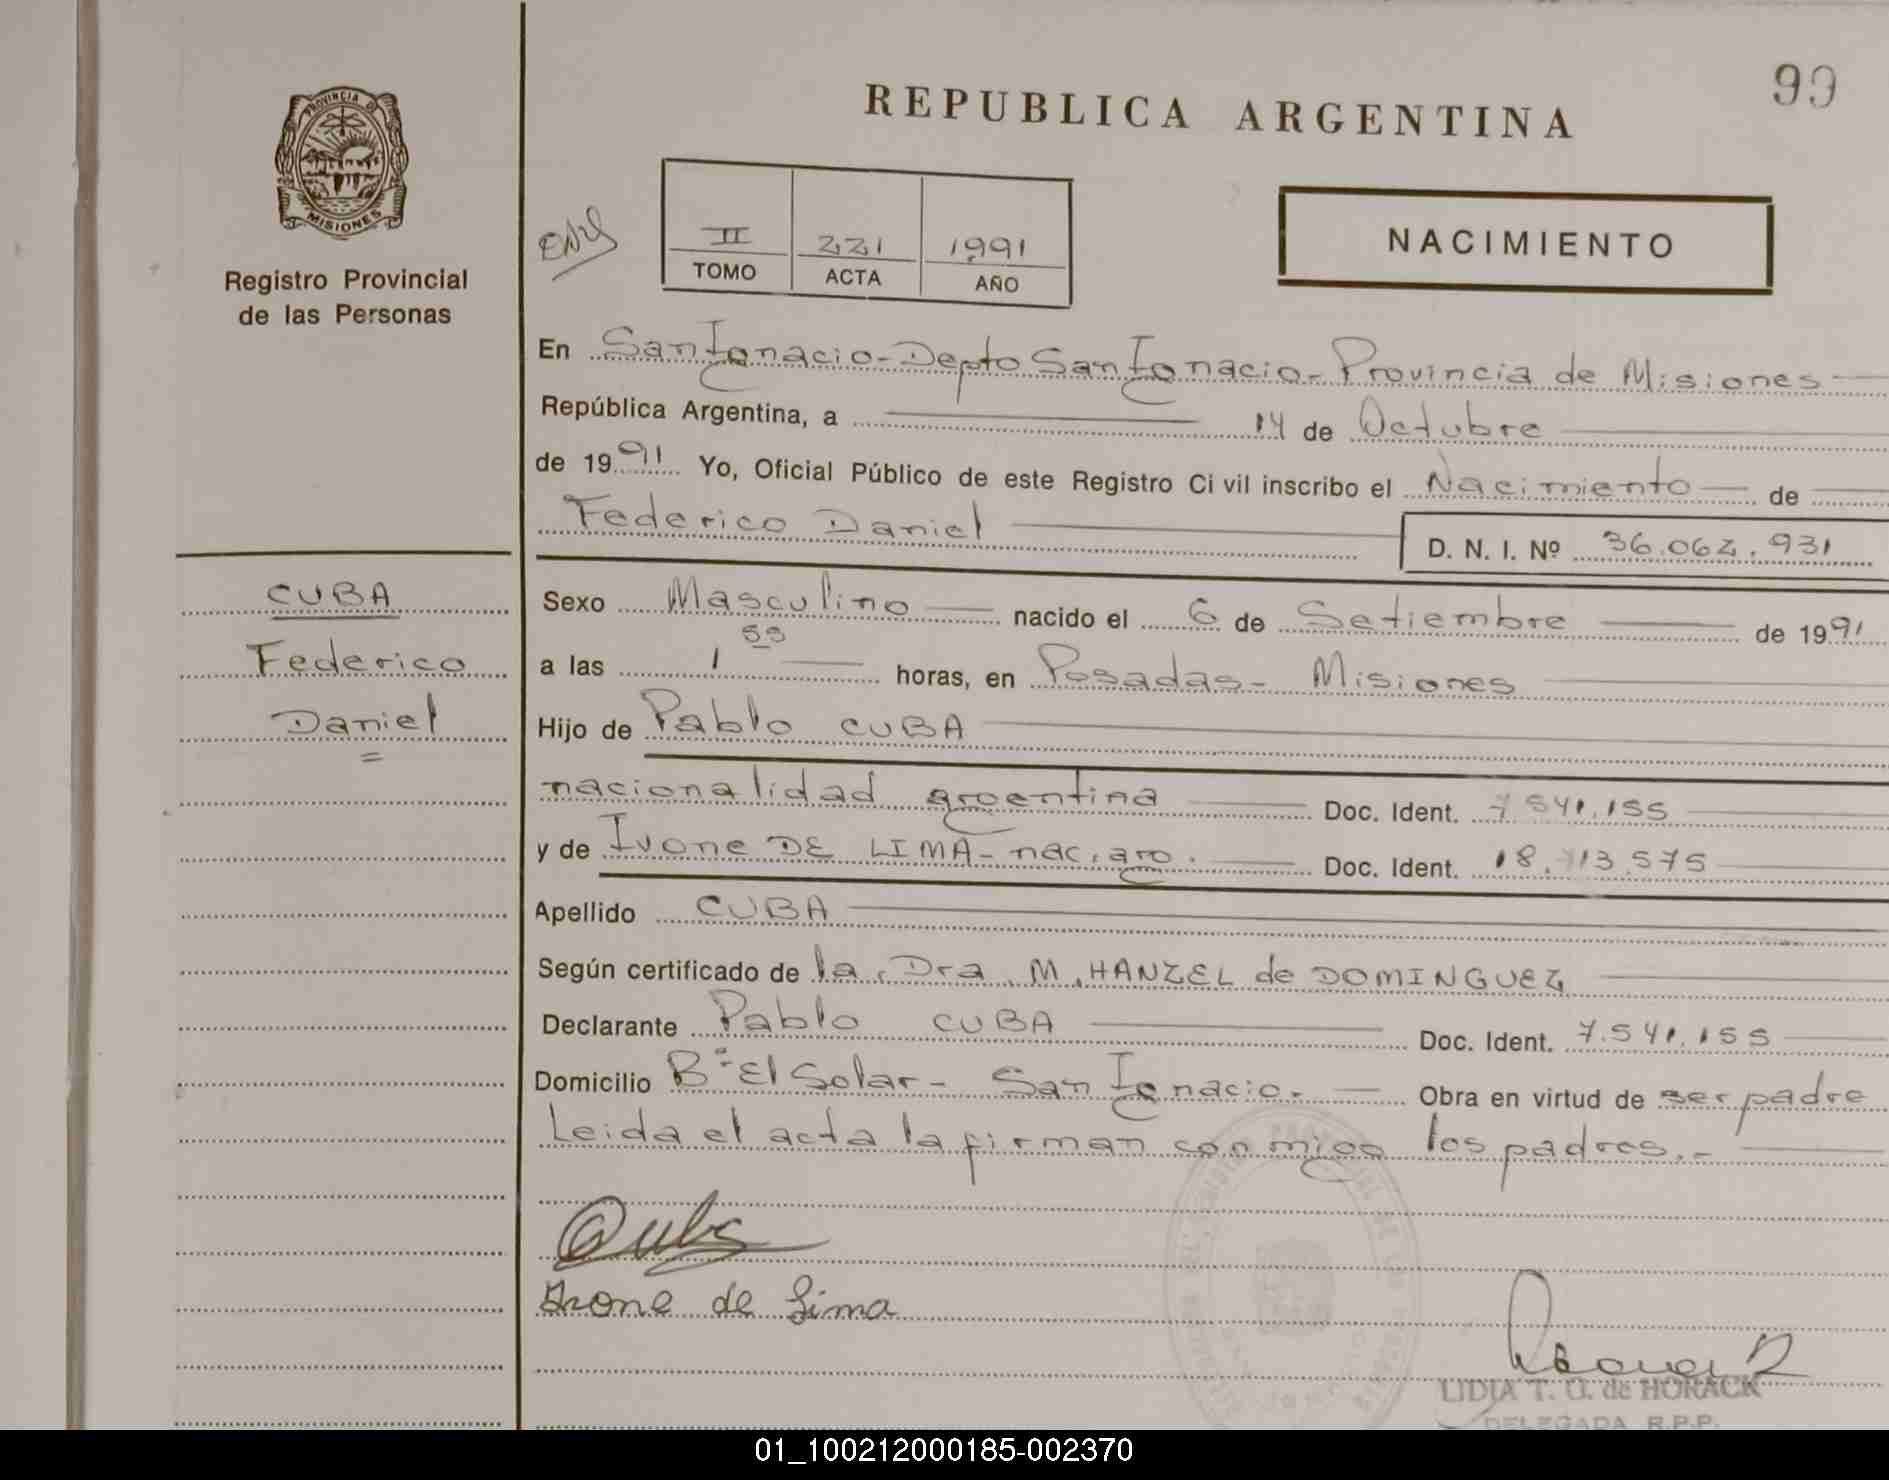 99
REPUBLICA ARGENTINA
PROVINCIA DE
MISIONES
Registro Provincial
de las Personas
II 221 1991
TOMO ACTA AÑO
NACIMIENTO
En San Ignacio - Depto San Ignacio - Provincia de Misiones
República Argentina, a 14 de Octubre
de 1991 Yo, Oficial Público de este Registro Civil inscribo el Nacimiento de
Federico Daniel D. N. I. Nº 36.062.931
CUBA
Federico
Daniel
Sexo Masculino nacido el 6 de Setiembre de 1991
a las 1 55 horas, en Posadas - Misiones
Hijo de Pablo CUBA
nacionalidad argentina Doc. Ident. 7.541.155
y de Ivone DE LIMA - nac. arg. Doc. Ident. 18.713.575
Apellido CUBA
Según certificado de la Dra M. HANZEL de DOMINGUEZ
Declarante Pablo CUBA Doc. Ident. 7.541.155
Domicilio Bº El Solar - San Ignacio. Obra en virtud de ser padre
Leida el acta la firman conmigo los padres.-
Cuba
Ivone de Lima
LIDIA T. G. de HORACK
DELEGADA R.P.P.
01_100212000185-002370